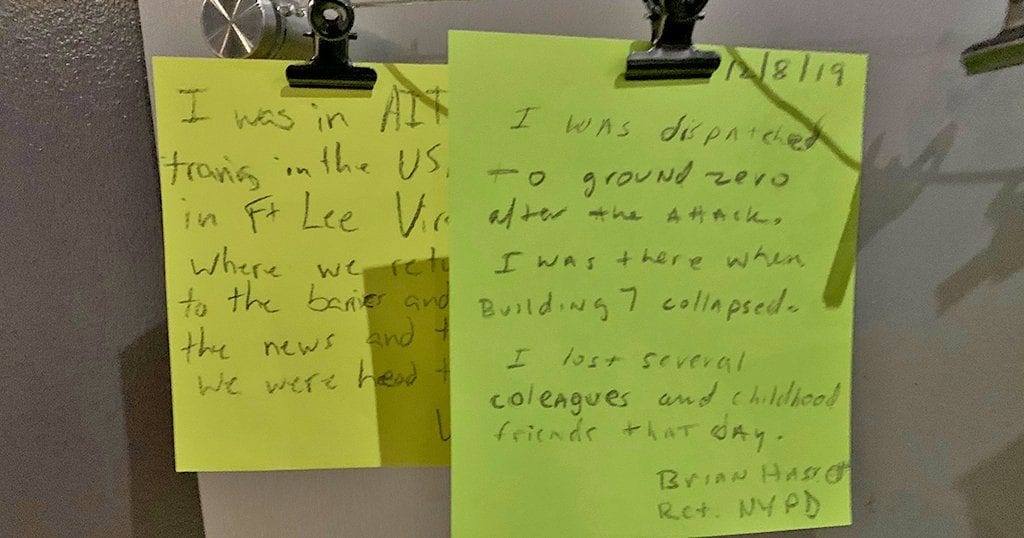 I was in AIT
traning in the US
in Ft Lee Vir
where we retu
to the barries and
the news and t
we were head t
12/8/19
I was dispatched
to ground zero
after the Attack.
I was there when
Building 7 collapsed.
I lost several
coleagues and childhood
friends that day.
Brian
Ret. NYPD